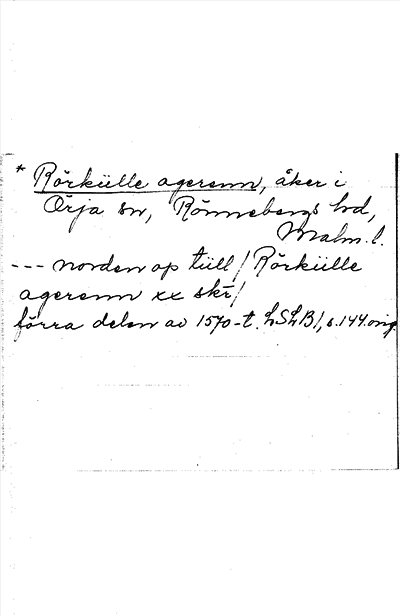 * Rörkülle agerenn, åker i
Örja sn, Rönnebergs hd,
Malm. l.
--- norden op tiill / Rörkiille
agerenn xx skr /
förra delen av 1570-t. LSLB1, s. 144. orig.